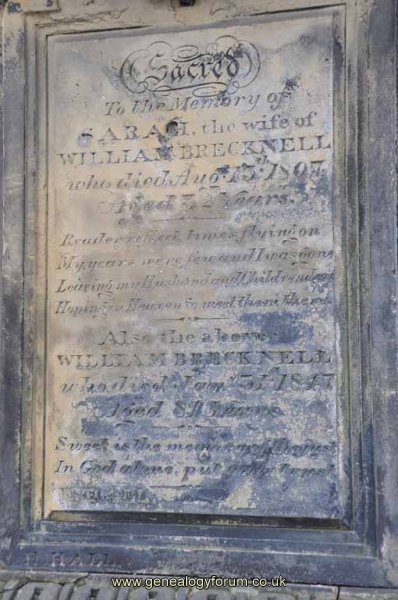 Sacred
To the Memory of
SARAH, the wife of
WILLIAM BRECKNELL
who died Aug. 15th. 1807,
Aged 32 Years.
Reader reflect times flying on
My years were few and I was gone
Leaving my Husband and Children dear
Hoping in Heaven to meet them there.
Also the above
WILLIAM BRECKNELL
who died Jany. 31st. 1847
Aged 81 Years
Sweet is the memory
In God alone, put trust
E. HALL
www.genealogyforum.co.uk